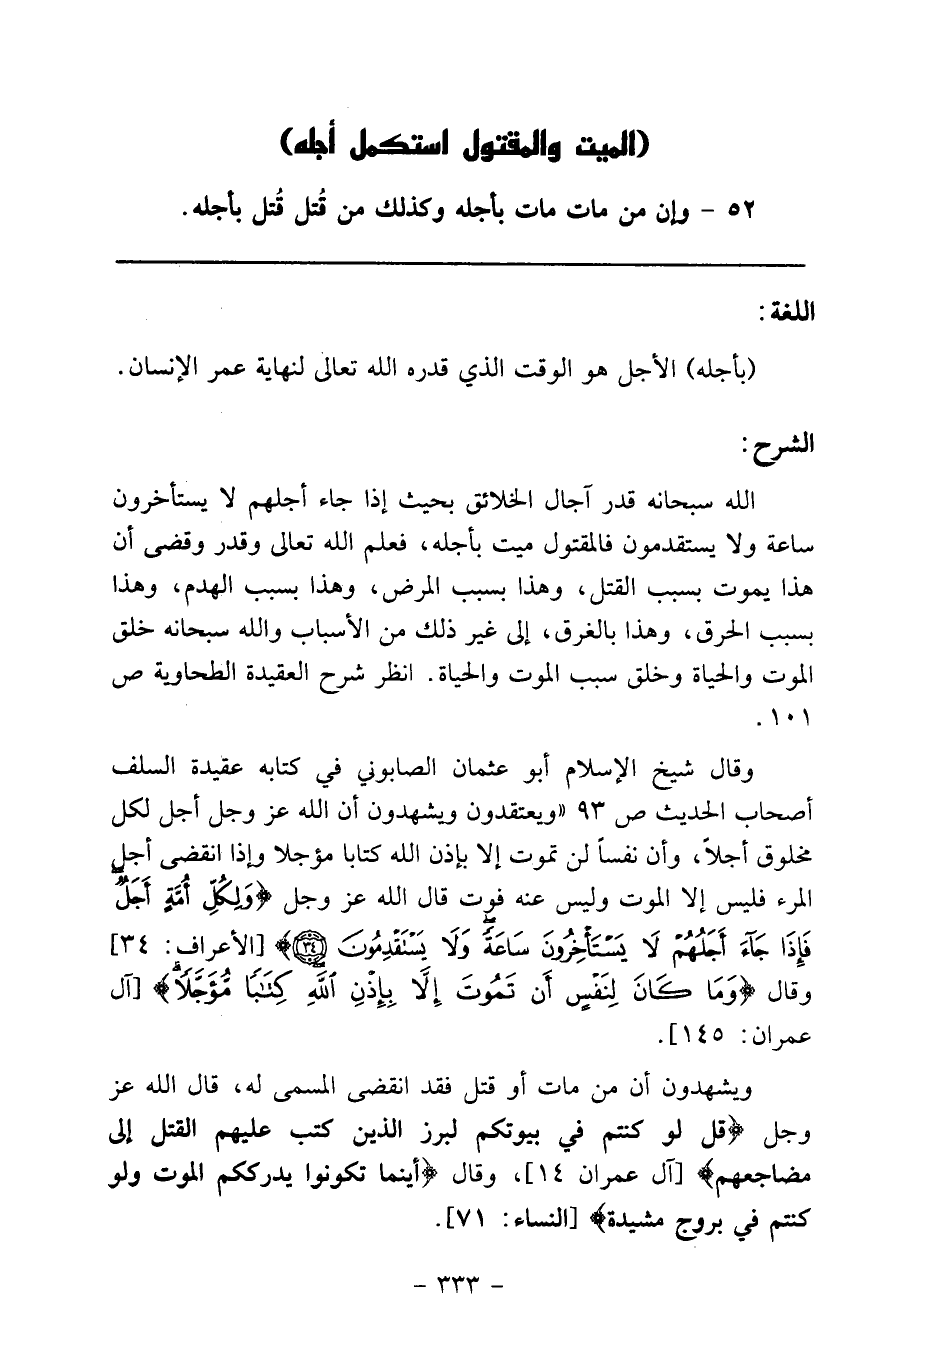 (الميت والمقتول استكمل أجله)
٥٢ - وإن من مات مات بأجله وكذلك من قُتل قُتل بأجله.
اللغة:
(بأجله) الأجل هو الوقت الذي قدره الله تعالى لنهاية عمر الإنسان.
الشرح:
الله سبحانه قدر آجال الخلائق بحيث إذا جاء أجلهم لا يستأخرون
ساعة ولا يستقدمون فالمقتول ميت بأجله، فعلم الله تعالى وقدر وقضى أن
هذا يموت بسبب القتل، وهذا بسبب المرض، وهذا بسبب الهدم، وهذا
بسبب الحرق، وهذا بالغرق، إلى غير ذلك من الأسباب والله سبحانه خلق
الموت والحياة وخلق سبب الموت والحياة. انظر شرح العقيدة الطحاوية ص
١٠١.
وقال شيخ الإسلام أبو عثمان الصابوني في كتابه عقيدة السلف
أصحاب الحديث ص ٩٣ «ويعتقدون ويشهدون أن الله عز وجل أجل لكل
مخلوق أجلاً، وأن نفساً لن تموت إلا بإذن الله كتابا مؤجلا وإذا انقضى أجل
المرء فليس إلا الموت وليس عنه فوت قال الله عز وجل ﴿وَلِكُلِّ أُمَّةٍ أَجَلٌۖ
فَإِذَا جَآءَ أَجَلُهُمْ لَا يَسْتَأْخِرُونَ سَاعَةً وَلَا يَسْتَقْدِمُونَ ۝٣٤﴾ [الأعراف: ٣٤]
وقال ﴿وَمَا كَانَ لِنَفْسٍ أَن تَمُوتَ إِلَّا بِإِذْنِ ٱللَّهِ كِتَٰبًا مُّؤَجَّلًاۗ﴾ [آل
عمران: ١٤٥].
ويشهدون أن من مات أو قتل فقد انقضى المسمى له، قال الله عز
وجل ﴿قل لو كنتم في بيوتكم لبرز الذين كتب عليهم القتل إلى
مضاجعهم﴾ [آل عمران ١٤]، وقال ﴿أينما تكونوا يدرككم الموت ولو
كنتم في بروج مشيدة﴾ [النساء: ٧١].
- ٣٣٣ -